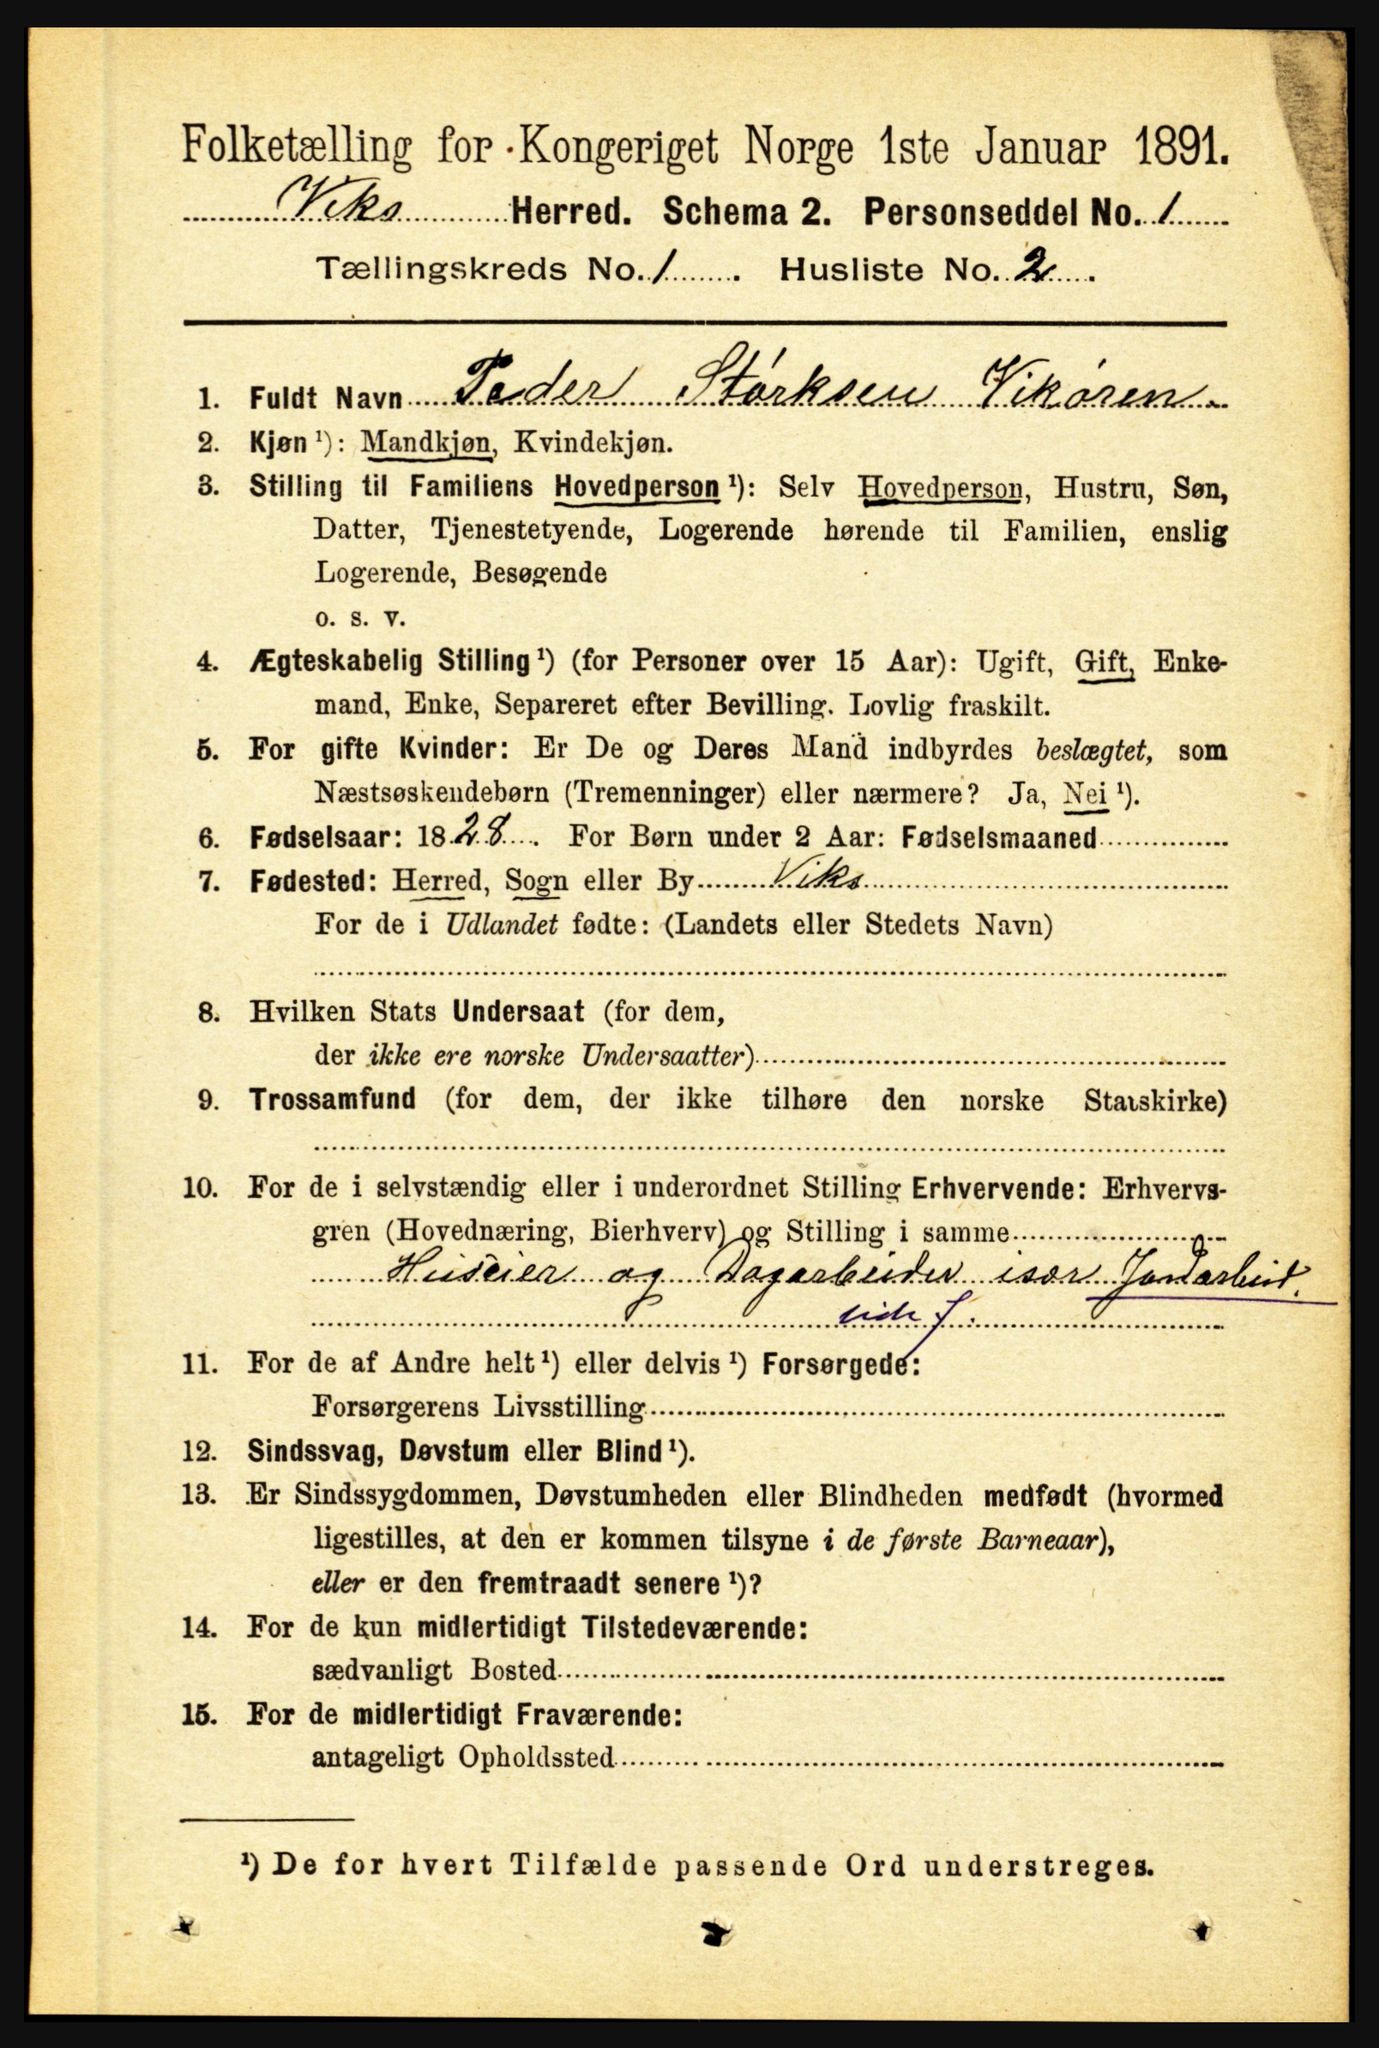 Folketælling for Kongeriget Norge 1ste Januar 1891.
Viks Herred. Schema 2. Personseddel No. 1
Tællingskreds No. 1. Husliste No. 2.
1. Fuldt Navn Peder Størksen Vikøren
2. Kjøn ¹): Mandkjøn, Kvindekjøn.
3. Stilling til Familiens Hovedperson ¹): Selv Hovedperson, Hustru, Søn,
Datter, Tjenestetyende, Logerende hørende til Familien, enslig
Logerende, Besøgende
o. s. v.
4. Ægteskabelig Stilling ¹) (for Personer over 15 Aar): Ugift, Gift, Enke-
mand, Enke, Separeret efter Bevilling. Lovlig fraskilt.
5. For gifte Kvinder: Er De og Deres Mand indbyrdes beslægtet, som
Næstsøskendebørn (Tremenninger) eller nærmere? Ja, Nei ¹).
6. Fødselsaar: 1828. For Børn under 2 Aar: Fødselsmaaned
7. Fødested: Herred, Sogn eller By Viks
For de i Udlandet fødte: (Landets eller Stedets Navn)
8. Hvilken Stats Undersaat (for dem,
der ikke ere norske Undersaatter)
9. Trossamfund (for dem, der ikke tilhøre den norske Statskirke)
10. For de i selvstændig eller i underordnet Stilling Erhvervende: Erhvervs-
gren (Hovednæring, Bierhverv) og Stilling i samme
Huseier og Dagarbeider især Jordarbeid.
11. For de af Andre helt ¹) eller delvis ¹) Forsørgede:
Forsørgerens Livsstilling
12. Sindssvag, Døvstum eller Blind ¹).
13. Er Sindssygdommen, Døvstumheden eller Blindheden medfødt (hvormed
ligestilles, at den er kommen tilsyne i de første Barneaar),
eller er den fremtraadt senere ¹)?
14. For de kun midlertidigt Tilstedeværende:
sædvanligt Bosted
15. For de midlertidigt Fraværende:
antageligt Opholdssted
¹) De for hvert Tilfælde passende Ord understreges.